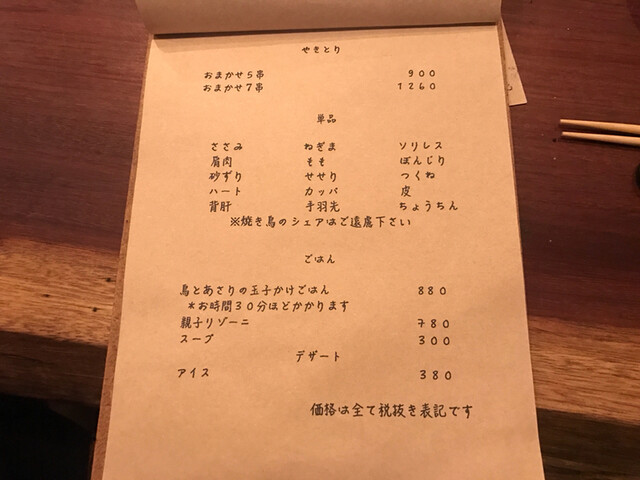 やきとり
おまかせ5串 900
おまかせ7串 1260
単品
ささみ ねぎま ソリレス
肩肉 もも ぼんじり
砂ずり せせり つくね
ハート カッパ 皮
背肝 手羽先 ちょうちん
※焼き鳥のシェアはご遠慮下さい
ごはん
鳥とあさりの玉子かけごはん 880
*お時間30分ほどかかります
親子リゾーニ 780
スープ 300
デザート
アイス 380
価格は全て税抜き表記です